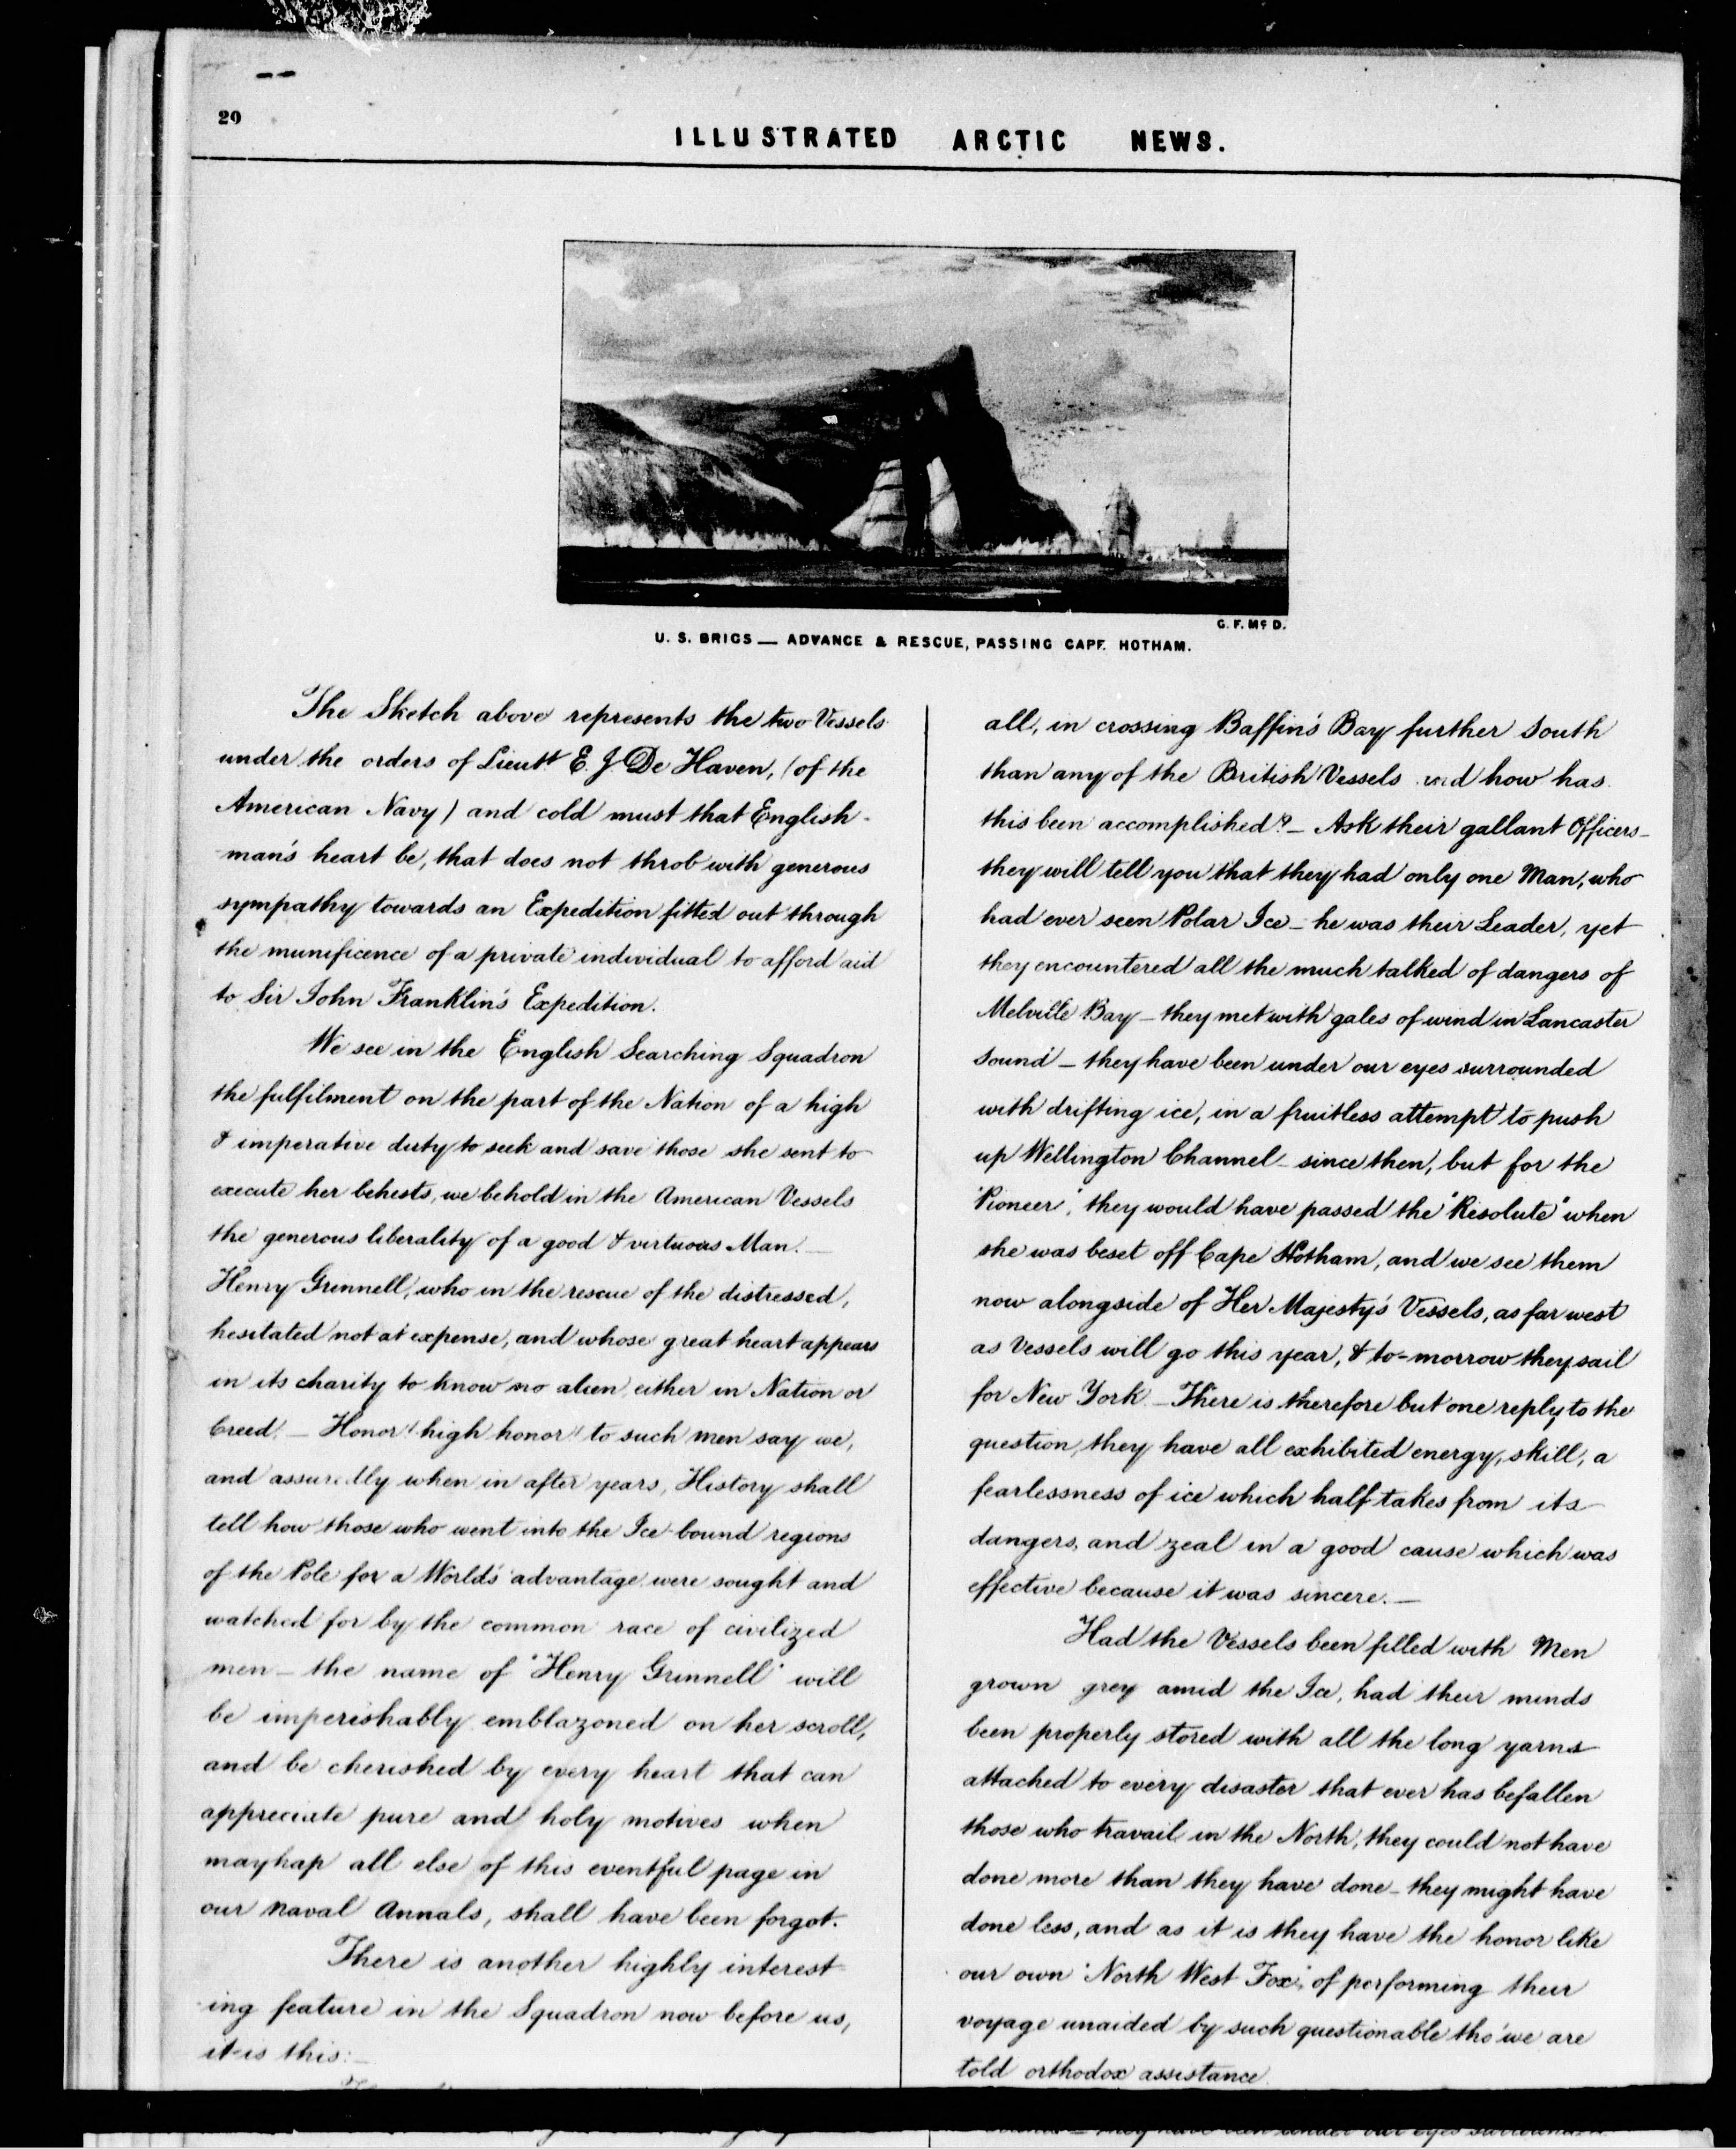 20
ILLUSTRATED ARCTIC NEWS.
G. F. Mc D.
U. S. BRIGS — ADVANCE & RESCUE, PASSING CAPE HOTHAM.
The Sketch above represents the two Vessels
under the orders of Lieutt E. J. De Haven, (of the
American Navy) and cold must that English-
man's heart be, that does not throb with generous
sympathy towards an Expedition fitted out through
the munificence of a private individual to afford aid
to Sir John Franklin's Expedition.
We see in the English Searching Squadron
the fulfilment on the part of the Nation of a high
& imperative duty to seek and save those she sent to
execute her behests, we behold in the American Vessels
the generous liberality of a good & virtuous Man. —
Henry Grinnell, who in the rescue of the distressed,
hesitated not at expense, and whose great heart appears
in its charity to know no alien either in Nation or
Creed. — Honor! high honor!! to such men say we,
and assuredly when in after years, History shall
tell how those who went into the Ice-bound regions
of the Pole for a World's advantage were sought and
watched for by the common race of civilized
men — the name of "Henry Grinnell" will
be imperishably emblazoned on her scroll,
and be cherished by every heart that can
appreciate pure and holy motives when
mayhap all else of this eventful page in
our Naval Annals, shall have been forgot.
There is another highly interest-
ing feature in the Squadron now before us,
it is this: —
all, in crossing Baffin's Bay further South
than any of the British Vessels and how has
this been accomplished? — Ask their gallant Officers —
they will tell you that they had only one Man, who
had ever seen Polar Ice — he was their Leader, yet
they encountered all the much talked of dangers of
Melville Bay — they met with gales of wind in Lancaster
Sound — they have been under our eyes surrounded
with drifting ice, in a fruitless attempt to push
up Wellington Channel — since then, but for the
"Pioneer", they would have passed the "Resolute" when
she was beset off Cape Hotham, and we see them
now alongside of Her Majesty's Vessels, as far west
as Vessels will go this year, & to-morrow they sail
for New York. — There is therefore but one reply to the
question, they have all exhibited energy, skill, a
fearlessness of ice which half takes from its
dangers, and zeal in a good cause which was
effective because it was sincere. —
Had the Vessels been filled with Men
grown grey amid the Ice, had their minds
been properly stored with all the long yarns
attached to every disaster that ever has befallen
those who travail in the North, they could not have
done more than they have done — they might have
done less, and as it is they have the honor like
our own "North West Fox", of performing their
voyage unaided by such questionable tho' we are
told orthodox assistance.